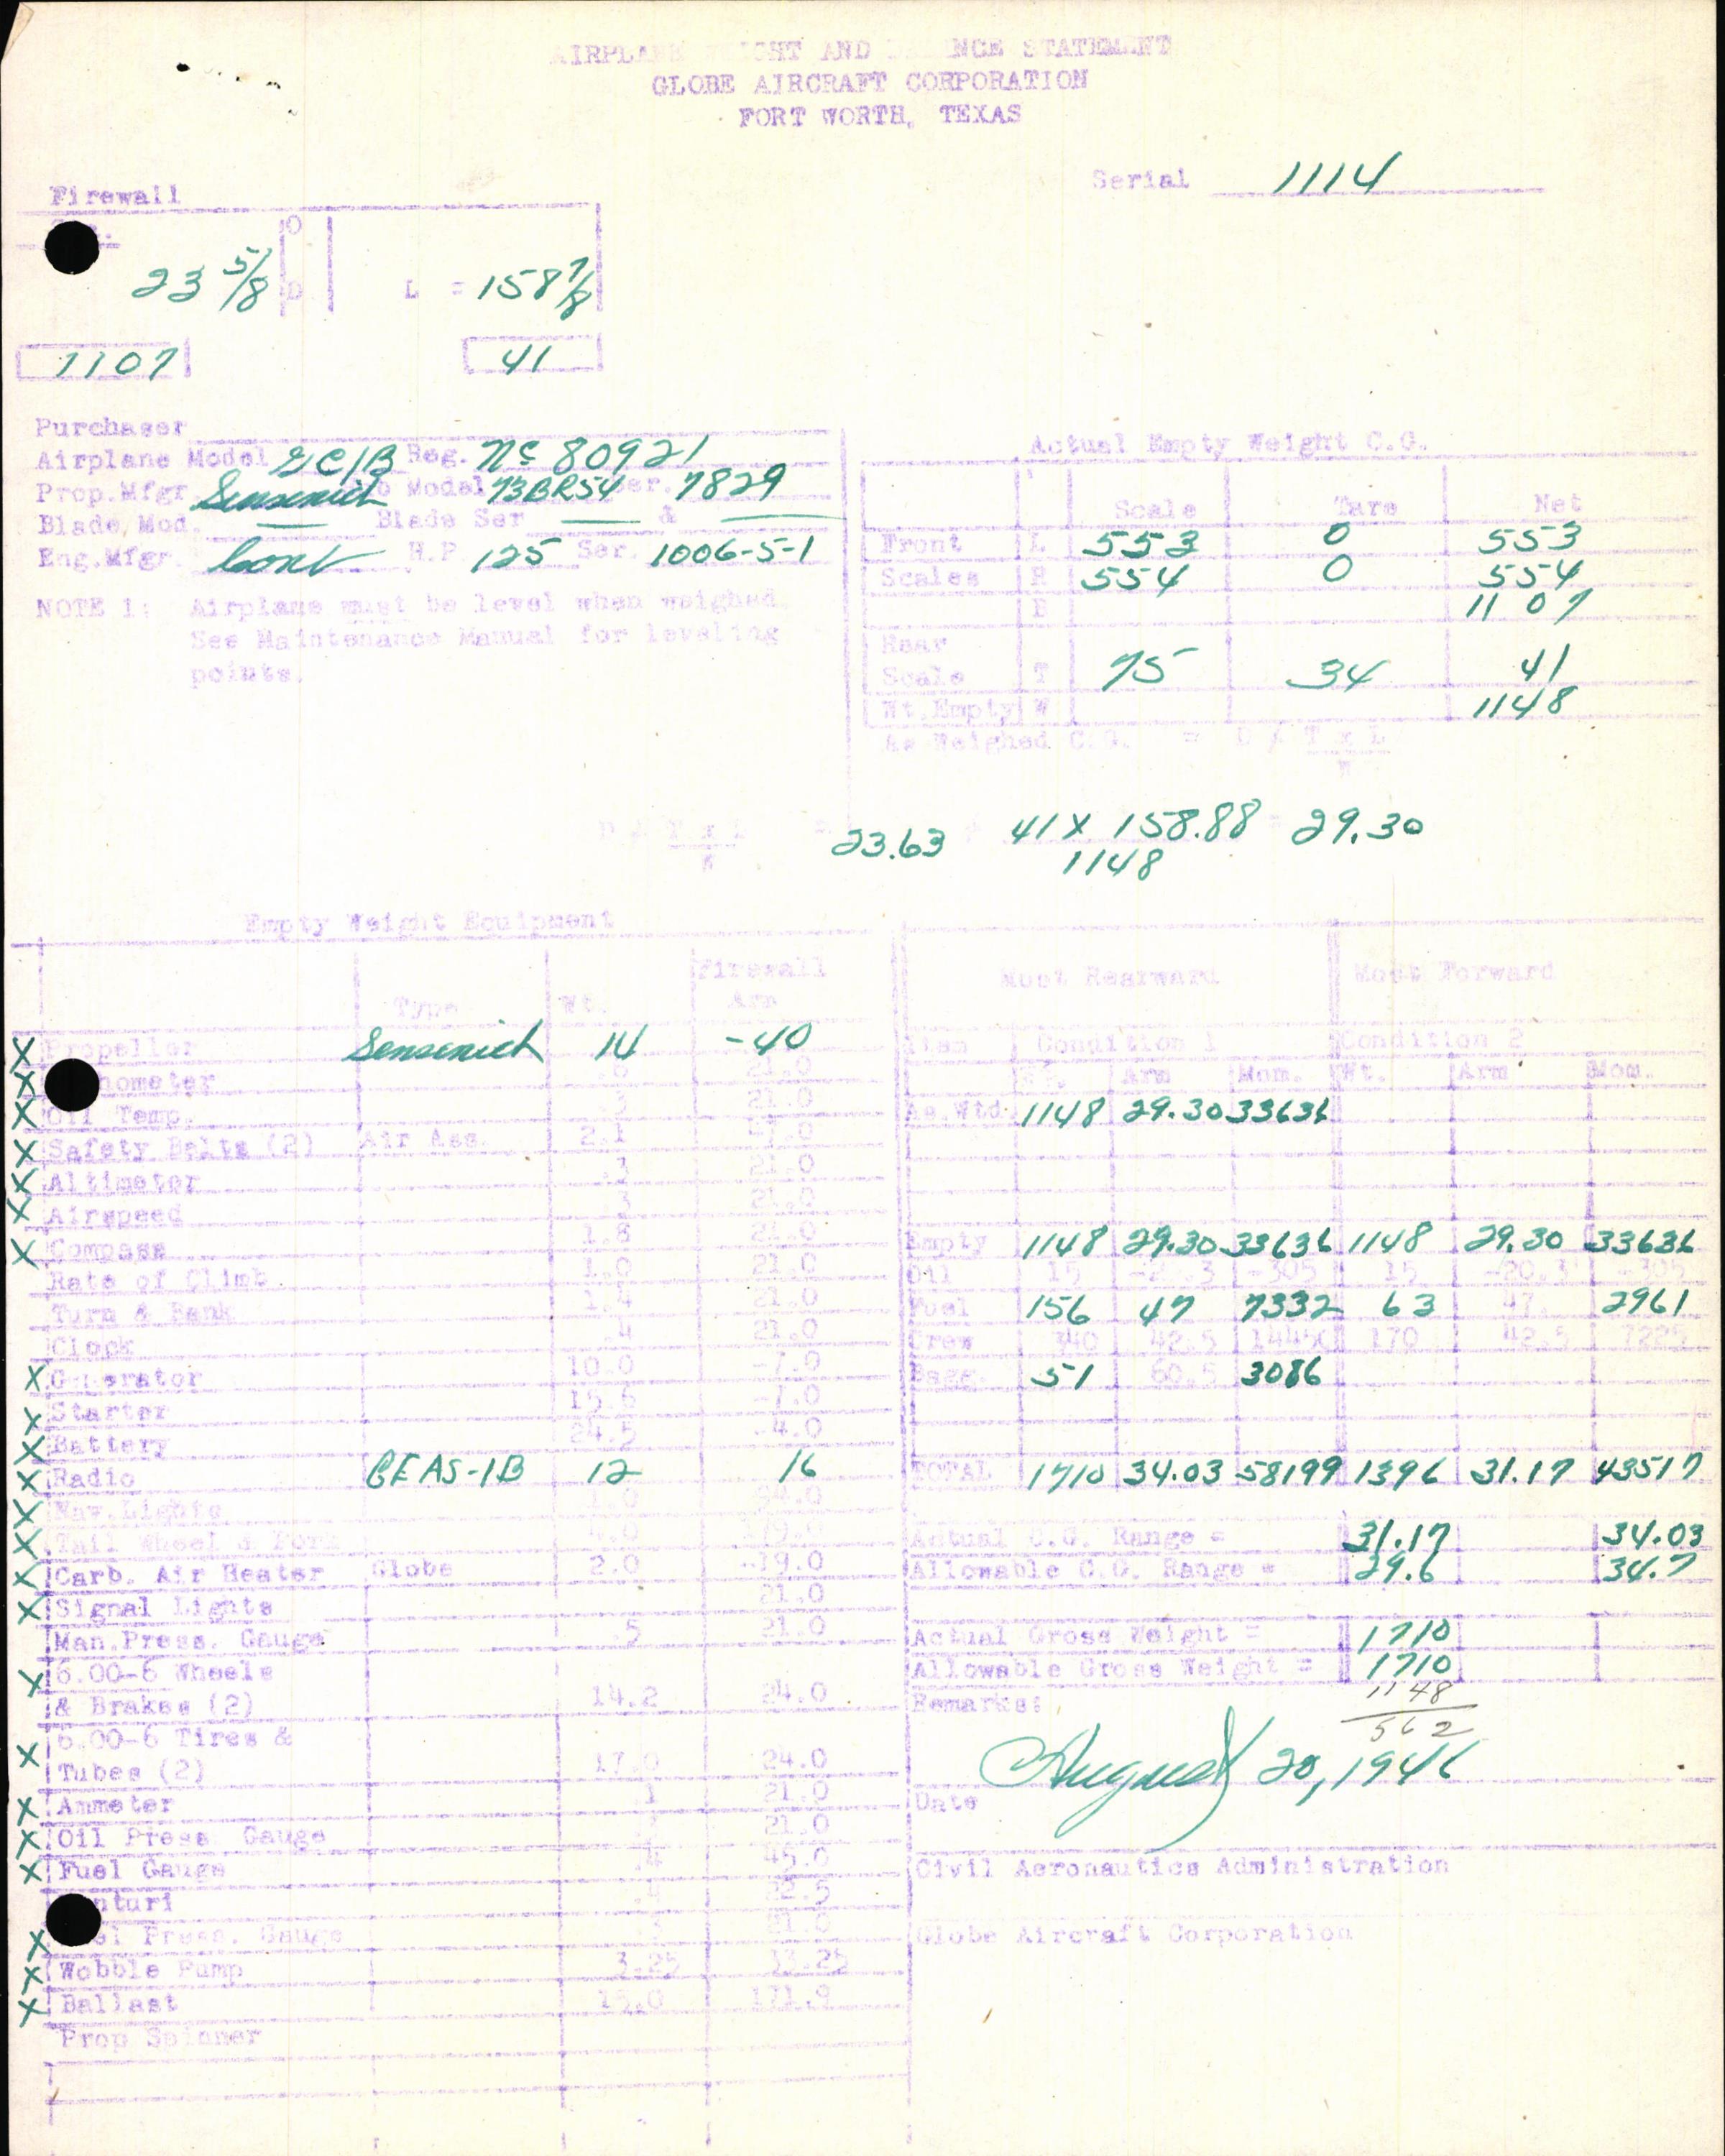 AIRPLANE WEIGHT AND BALANCE STATEMENT
GLOBE AIRCRAFT CORPORATION
FORT WORTH, TEXAS
Serial 1114
Firewall
O
23 5/8 D L = 158 7/8
1107 41
Purchaser
Airplane Model GC1B Reg. NC 80921
Prop.Mfgr. Sensenich Model 73BR54 Ser. 7829
Blade, Mod. — Blade Ser — & —
Eng.Mfgr. Cont H.P. 125 Ser. 1006-5-1
NOTE 1: Airplane must be level when weighed.
See Maintenance Manual for leveling
points.
Actual Empty Weight C.G.
Scale Tare Net
Front L 553 0 553
Scales R 554 0 554
1107
Rear
Scale T 75 34 41
Wt.Empty W 1148
As Weighed C.G. = D / T x L
W
D / T x L = 23.63 41 X 158.88 29.30
W 1148
Empty Weight Equipment
Type Wt. Firewall Arm
X Propeller Sensenich 14 -40
X 21.0
X Oil Temp. .3 21.0
X Safety Belts (2) Air Ass. 2.1
X Altimeter 21.0
X Airspeed .3 21.0
X Compass 1.8 21.0
Rate of Climb 1.0 21.0
Turn & Bank 1.4 21.0
Clock .4 21.0
X Generator 10.0 -7.0
X Starter 15.6 -7.0
X Battery 24.5 -4.0
X Radio GEAS-1B 12 16
X Nav.Lights
X Tail Wheel & Fork
X Carb. Air Heater Globe 2.0 -19.0
X Signal Lights 21.0
Man.Press. Gauge .5 21.0
X 6.00-6 Wheels
& Brakes (2) 14.2 24.0
X 6.00-6 Tires &
Tubes (2) 17.0 24.0
X Ammeter .1 21.0
X Oil Press. Gauge 21.0
X Fuel Gauge 45.0
Press. Gauge
X Wobble Pump 3.25 13.25
X Ballast 15.0 171.9
Prop Spinner
Most Rearward Most Forward
Item Condition 1 Condition 2
Wt. Arm Mom. Wt. Arm Mom.
As Wtd. 1148 29.30 33636
Empty 1148 29.30 33636 1148 29.30 33636
Oil 15 -20.3 -305 15 -20.3 -305
Fuel 156 47 7332 63 47. 2961
Crew 340 42.5 14450 170 42.5 7225
Bagg. 51 60.5 3086
TOTAL 1710 34.03 58199 1396 31.17 43517
Actual C.G. Range = 31.17 34.03
Allowable C.G. Range = 29.6 34.7
Actual Gross Weight = 1710
Allowable Gross Weight = 1710
1148
562
Remarks:
August 20, 1946
Date
Civil Aeronautics Administration
Globe Aircraft Corporation